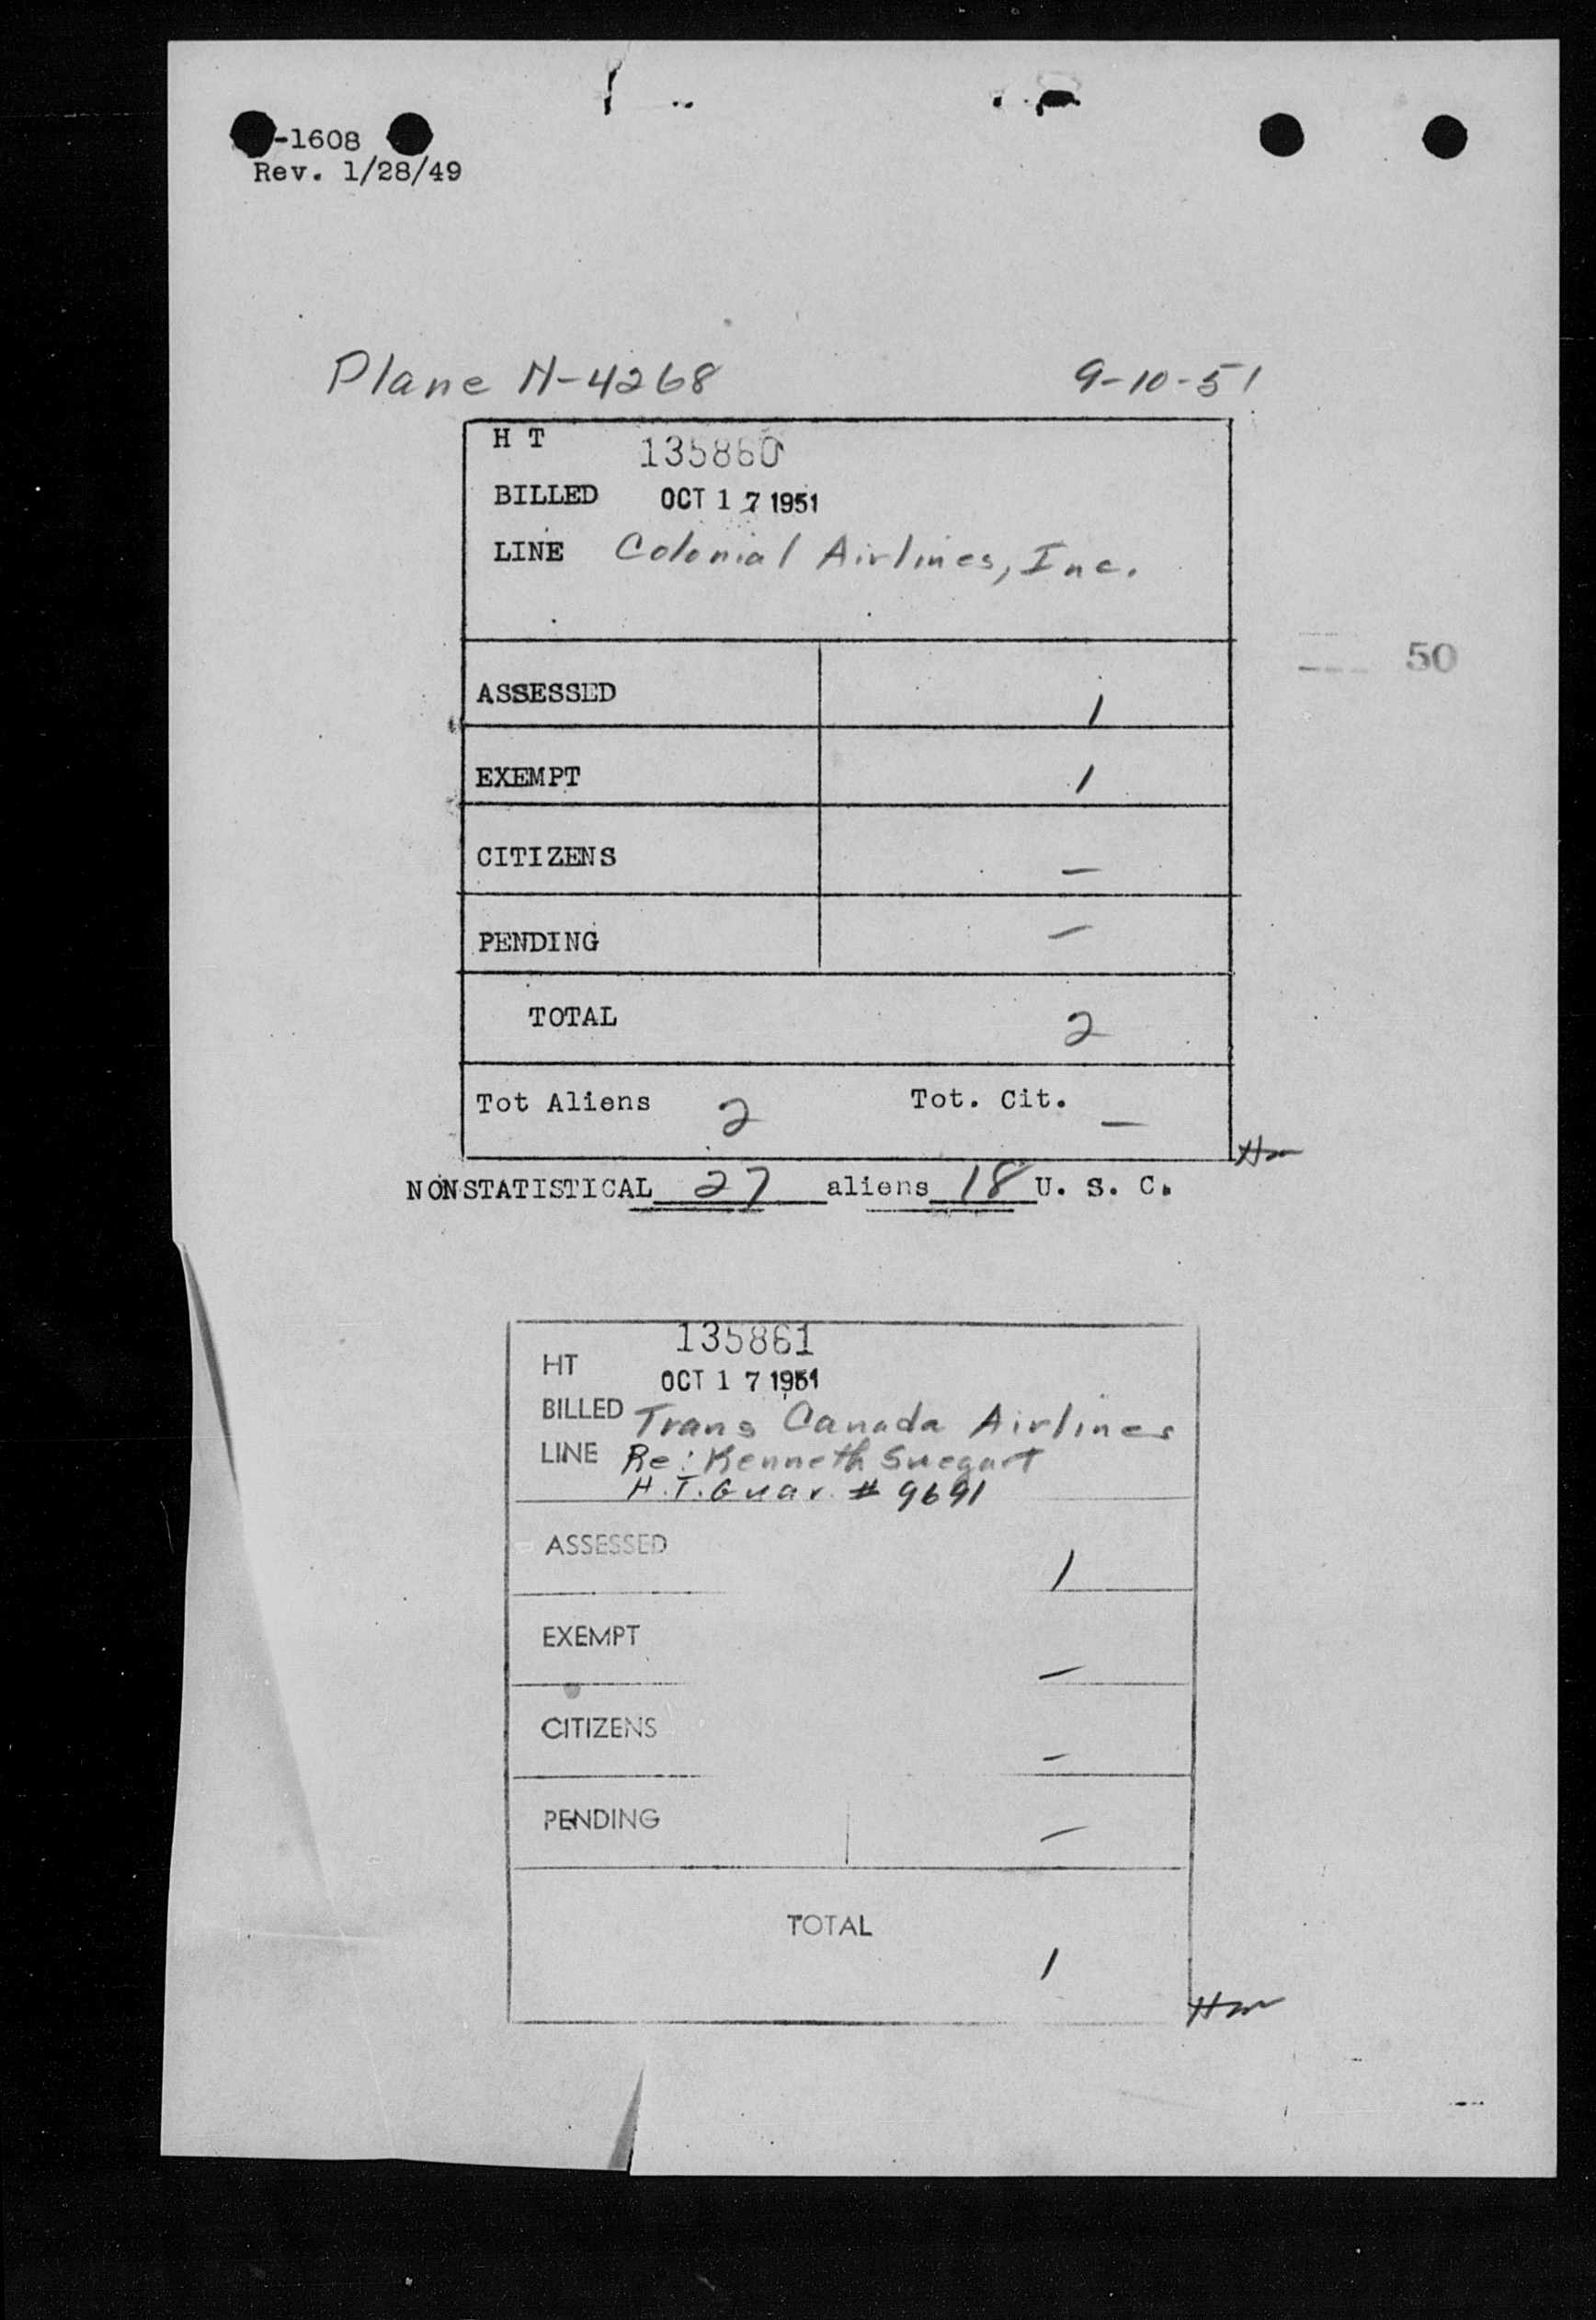 -1608
Rev. 1/28/49
Plane N-4268 9-10-51
H T 135860
BILLED OCT 17 1951
LINE Colonial Airlines, Inc.
50
ASSESSED 1
EXEMPT 1
CITIZENS —
PENDING —
TOTAL 2
Tot Aliens 2 Tot. Cit. —
NONSTATISTICAL 27 aliens 18 U. S. C.
135861
HT
OCT 17 1951
BILLED Trans Canada Airlines
LINE Re: Kenneth
H.T. Guar. # 9691
ASSESSED 1
EXEMPT —
CITIZENS —
PENDING —
TOTAL
1